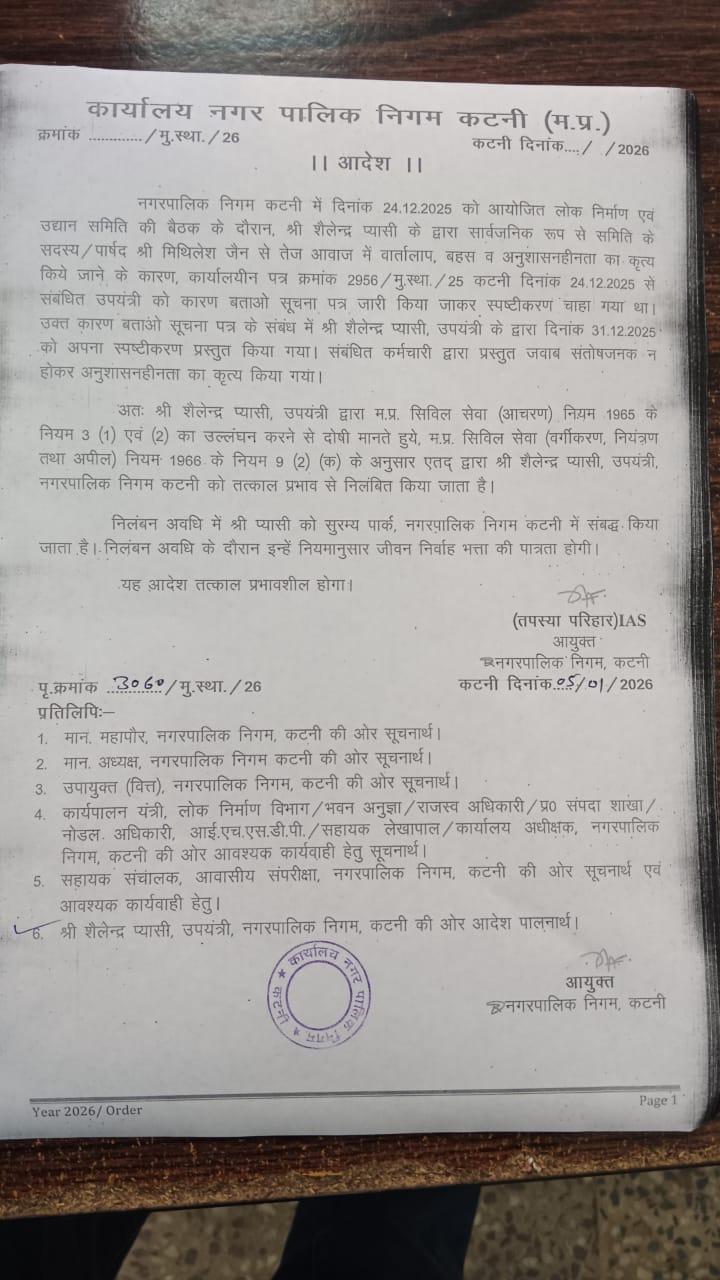 कार्यालय नगर पालिक निगम कटनी (म.प्र.)
क्रमांक ............./मु.स्था./26
कटनी दिनांक..../ /2026
।। आदेश ।।
नगरपालिक निगम कटनी में दिनांक 24.12.2025 को आयोजित लोक निर्माण एवं
उद्यान समिति की बैठक के दौरान, श्री शैलेन्द्र प्यासी के द्वारा सार्वजनिक रूप से समिति के
सदस्य/पार्षद श्री मिथिलेश जैन से तेज आवाज में वार्तालाप, बहस व अनुशासनहीनता का कृत्य
किये जाने के कारण, कार्यालयीन पत्र क्रमांक 2956/मु.स्था./25 कटनी दिनांक 24.12.2025 से
संबंधित उपयंत्री को कारण बताओ सूचना पत्र जारी किया जाकर स्पष्टीकरण चाहा गया था।
उक्त कारण बताओ सूचना पत्र के संबंध में श्री शैलेन्द्र प्यासी, उपयंत्री के द्वारा दिनांक 31.12.2025
को अपना स्पष्टीकरण प्रस्तुत किया गया। संबंधित कर्मचारी द्वारा प्रस्तुत जवाब संतोषजनक न
होकर अनुशासनहीनता का कृत्य किया गया।
अतः श्री शैलेन्द्र प्यासी, उपयंत्री द्वारा म.प्र. सिविल सेवा (आचरण) नियम 1965 के
नियम 3 (1) एवं (2) का उल्लंघन करने से दोषी मानते हुये, म.प्र. सिविल सेवा (वर्गीकरण, नियंत्रण
तथा अपील) नियम 1966 के नियम 9 (2) (क) के अनुसार एतद् द्वारा श्री शैलेन्द्र प्यासी, उपयंत्री,
नगरपालिक निगम कटनी को तत्काल प्रभाव से निलंबित किया जाता है।
निलंबन अवधि में श्री प्यासी को सुरम्य पार्क, नगरपालिक निगम कटनी में संबद्ध किया
जाता है। निलंबन अवधि के दौरान इन्हें नियमानुसार जीवन निर्वाह भत्ता की पात्रता होगी।
यह आदेश तत्काल प्रभावशील होगा।
(तपस्या परिहार)IAS
आयुक्त
नगरपालिक निगम, कटनी
पृ.क्रमांक 3060/मु.स्था./26
कटनी दिनांक 05/01/2026
प्रतिलिपिः–
1. मान. महापौर, नगरपालिक निगम, कटनी की ओर सूचनार्थ।
2. मान. अध्यक्ष, नगरपालिक निगम कटनी की ओर सूचनार्थ।
3. उपायुक्त (वित्त), नगरपालिक निगम, कटनी की ओर सूचनार्थ।
4. कार्यपालन यंत्री, लोक निर्माण विभाग/भवन अनुज्ञा/राजस्व अधिकारी/प्र0 संपदा शाखा/
नोडल अधिकारी, आई.एच.एस.डी.पी./सहायक लेखापाल/कार्यालय अधीक्षक, नगरपालिक
निगम, कटनी की ओर आवश्यक कार्यवाही हेतु सूचनार्थ।
5. सहायक संचालक, आवासीय संपरीक्षा, नगरपालिक निगम, कटनी की ओर सूचनार्थ एवं
आवश्यक कार्यवाही हेतु।
6. श्री शैलेन्द्र प्यासी, उपयंत्री, नगरपालिक निगम, कटनी की ओर आदेश पालनार्थ।
कार्यालय नगर पालिक निगम ★ कटनी ★
आयुक्त
नगरपालिक निगम, कटनी
Year 2026/ Order
Page 1